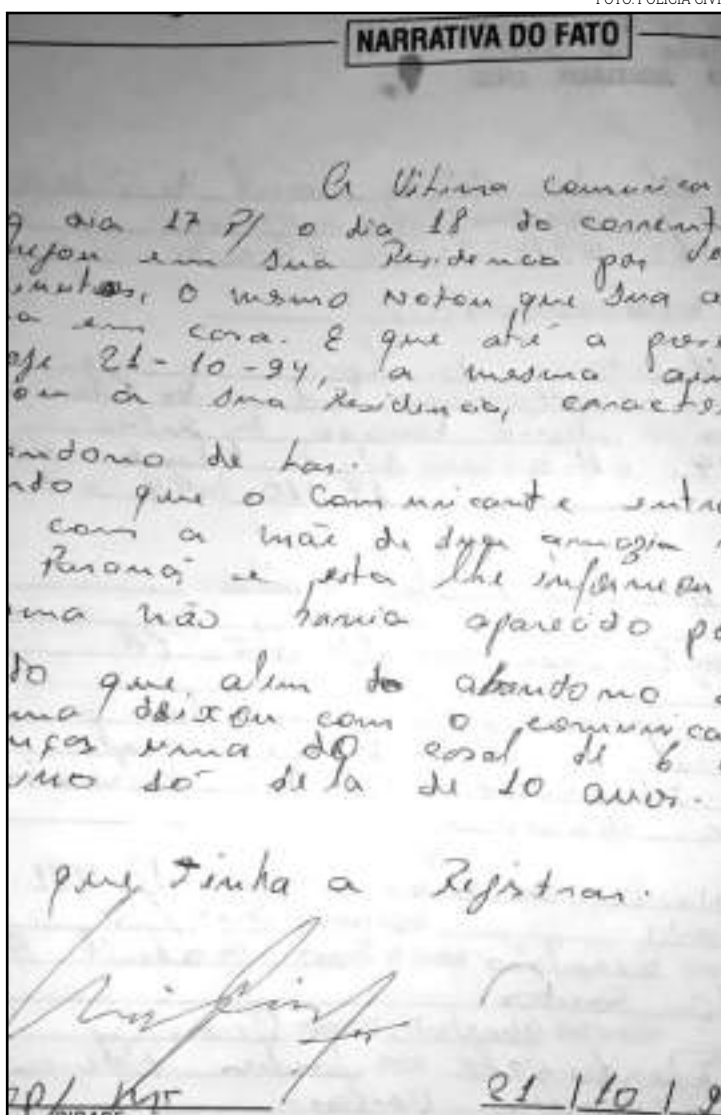 FOTO: POLÍCIA CIVI
NARRATIVA DO FATO
A Vitima comunica
dia 17 P/ o dia 18 do corrent
em sua Residencia por
o mesmo Notou que sua a
em casa. E que até a pres
21-10-94, a mesma
sua Residencia,
andono de Lar.
ndo que o comunicante entr
com a mãe de sua amazia
Paraná e esta lhe informou
não havia aparecido p
do que, alem do abandono
ma deixou com o comunica
nças uma do casal de 6
uno só dela de 10 anos.
que Tinha a Registrar.
21/10/9